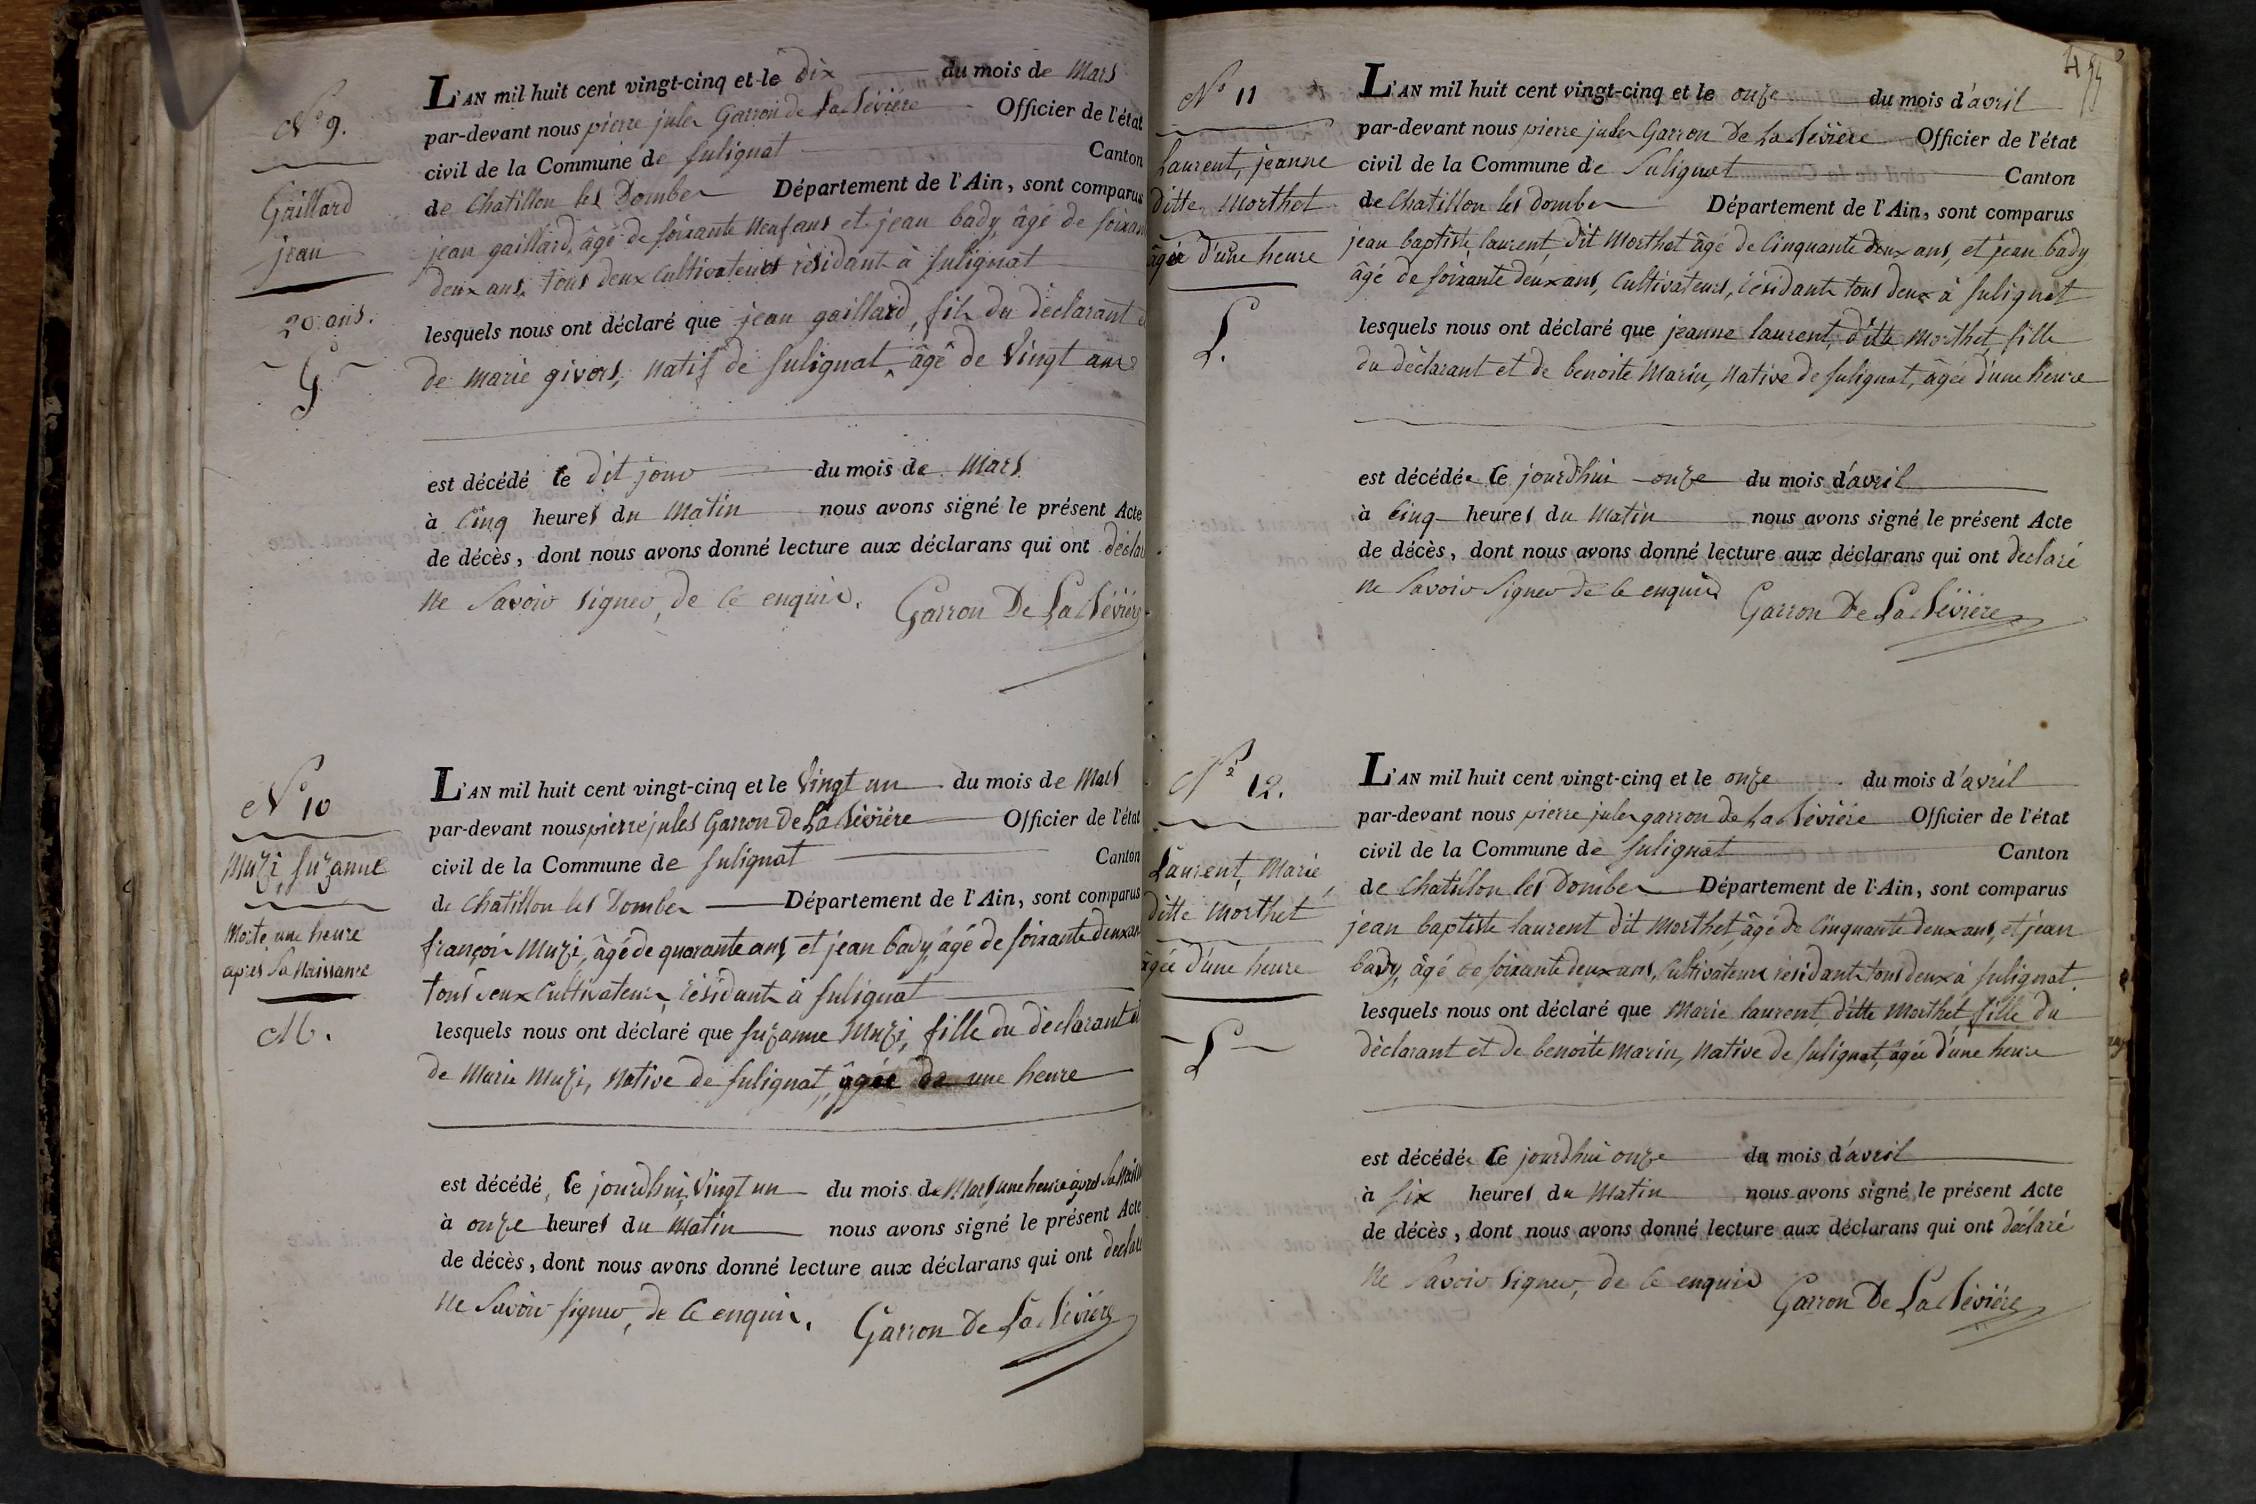 N° 9.
Gaillard
jean
20 ans.
G
L'AN mil huit cent vingt-cinq et le dix du mois de Mars
par-devant nous pierre jules Garron de La Sévière Officier de l'état
civil de la Commune de Sulignat Canton
de Chatillon les Dombes Département de l'Ain, sont comparus
jean gaillard, âgé de soixante neuf ans et jean bady, âgé de soixan
deux ans, tous deux cultivateurs résidant à Sulignat
lesquels nous ont déclaré que jean gaillard, fils du déclarant
de marie givors, natif de Sulignat, âgé de Vingt ans
est décédé le dit jour du mois de Mars
à Cinq heures du Matin nous avons signé le présent Acte
de décès, dont nous avons donné lecture aux déclarans qui ont déclar
ne Savoir Signer, de ce enquis. Garron De La Sévière
N° 10
Muzi, Suzanne
Morte une heure
après Sa Naissance
M.
L'AN mil huit cent vingt-cinq et le Vingt un du mois de Mars
par-devant nous pierre jules Garron de La Sévière Officier de l'état
civil de la Commune de Sulignat Canton
de Chatillon les Dombes Département de l'Ain, sont comparus
françois Muzi, âgé de quarante ans, et jean bady, âgé de soixante deux an
tous deux Cultivateurs, résidant à Sulignat
lesquels nous ont déclaré que Suzanne Muzi, fille du déclarant et
de Marie Muzi, Native de Sulignat, âgée de une heure
est décédé, le jourdhui Vingt un du mois de Mars, une heure après Sa Naiss
à onze heures du Matin nous avons signé le présent Acte
de décès, dont nous avons donné lecture aux déclarans qui ont déclar
ne Savoir Signer, de ce enquis. Garron De La Sévière
N° 11
Laurent, jeanne
ditte Morthet
âgée d'une heure
L.
L'AN mil huit cent vingt-cinq et le onze du mois d'avril
par-devant nous pierre jules Garron De La Sévière Officier de l'état
civil de la Commune de Sulignat Canton
de Chatillon les dombes Département de l'Ain, sont comparus
jean baptiste laurent, dit Morthet âgé de Cinquante deux ans, et jean bady
âgé de soixante deux ans, Cultivateurs, résidants tous deux à Sulignat
lesquels nous ont déclaré que jeanne laurent, ditte Morthet, fille
du déclarant et de benoite Marin, Native de Sulignat, âgée d'une heure
est décédée Le jourdhui onze du mois d'avril
à Cinq heures du Matin nous avons signé le présent Acte
de décès, dont nous avons donné lecture aux déclarans qui ont déclaré
ne Savoir Signer de ce enquis Garron De La Sévière
N° 12.
Laurent, Marie,
ditte Morthet
âgée d'une heure
L
L'AN mil huit cent vingt-cinq et le onze du mois d'avril
par-devant nous pierre jules garron de La Sévière Officier de l'état
civil de la Commune de Sulignat Canton
de Chatillon les Dombes Département de l'Ain, sont comparus
jean baptiste laurent dit Morthet, âgé de Cinquante deux ans, et jean
bady, âgé de soixante deux ans, Cultivateurs résidants tous deux à Sulignat.
lesquels nous ont déclaré que Marie laurent, ditte Morthet fille du
déclarant et de benoite Marin, Native de Sulignat, âgée d'une heure
est décédée Le jourdhui onze du mois d'avril
à Six heures du Matin nous avons signé le présent Acte
de décès, dont nous avons donné lecture aux déclarans qui ont déclaré
ne Savoir Signer, de ce enquis Garron De La Sévière